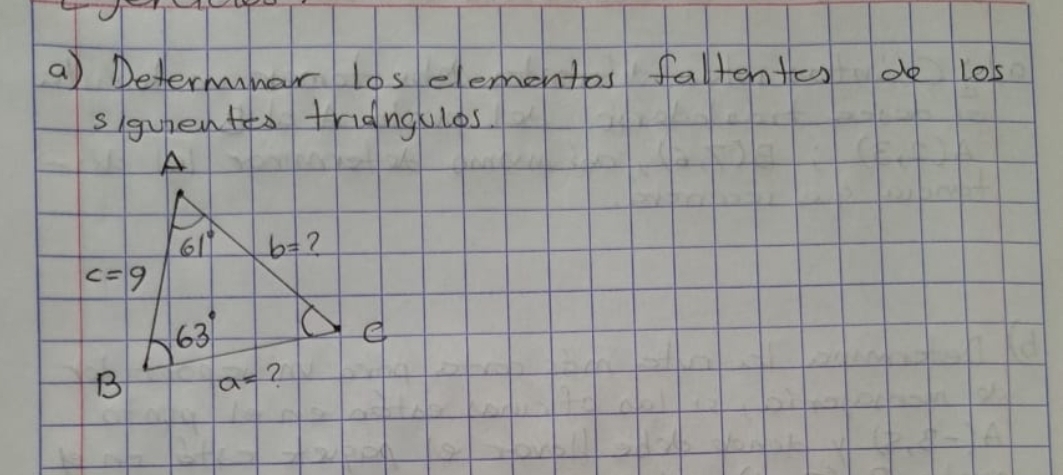 a) Determinar los elementos faltentes de los
siguientes triángulos.
A
61°
b=?
c=9
63°
C
B
a=?